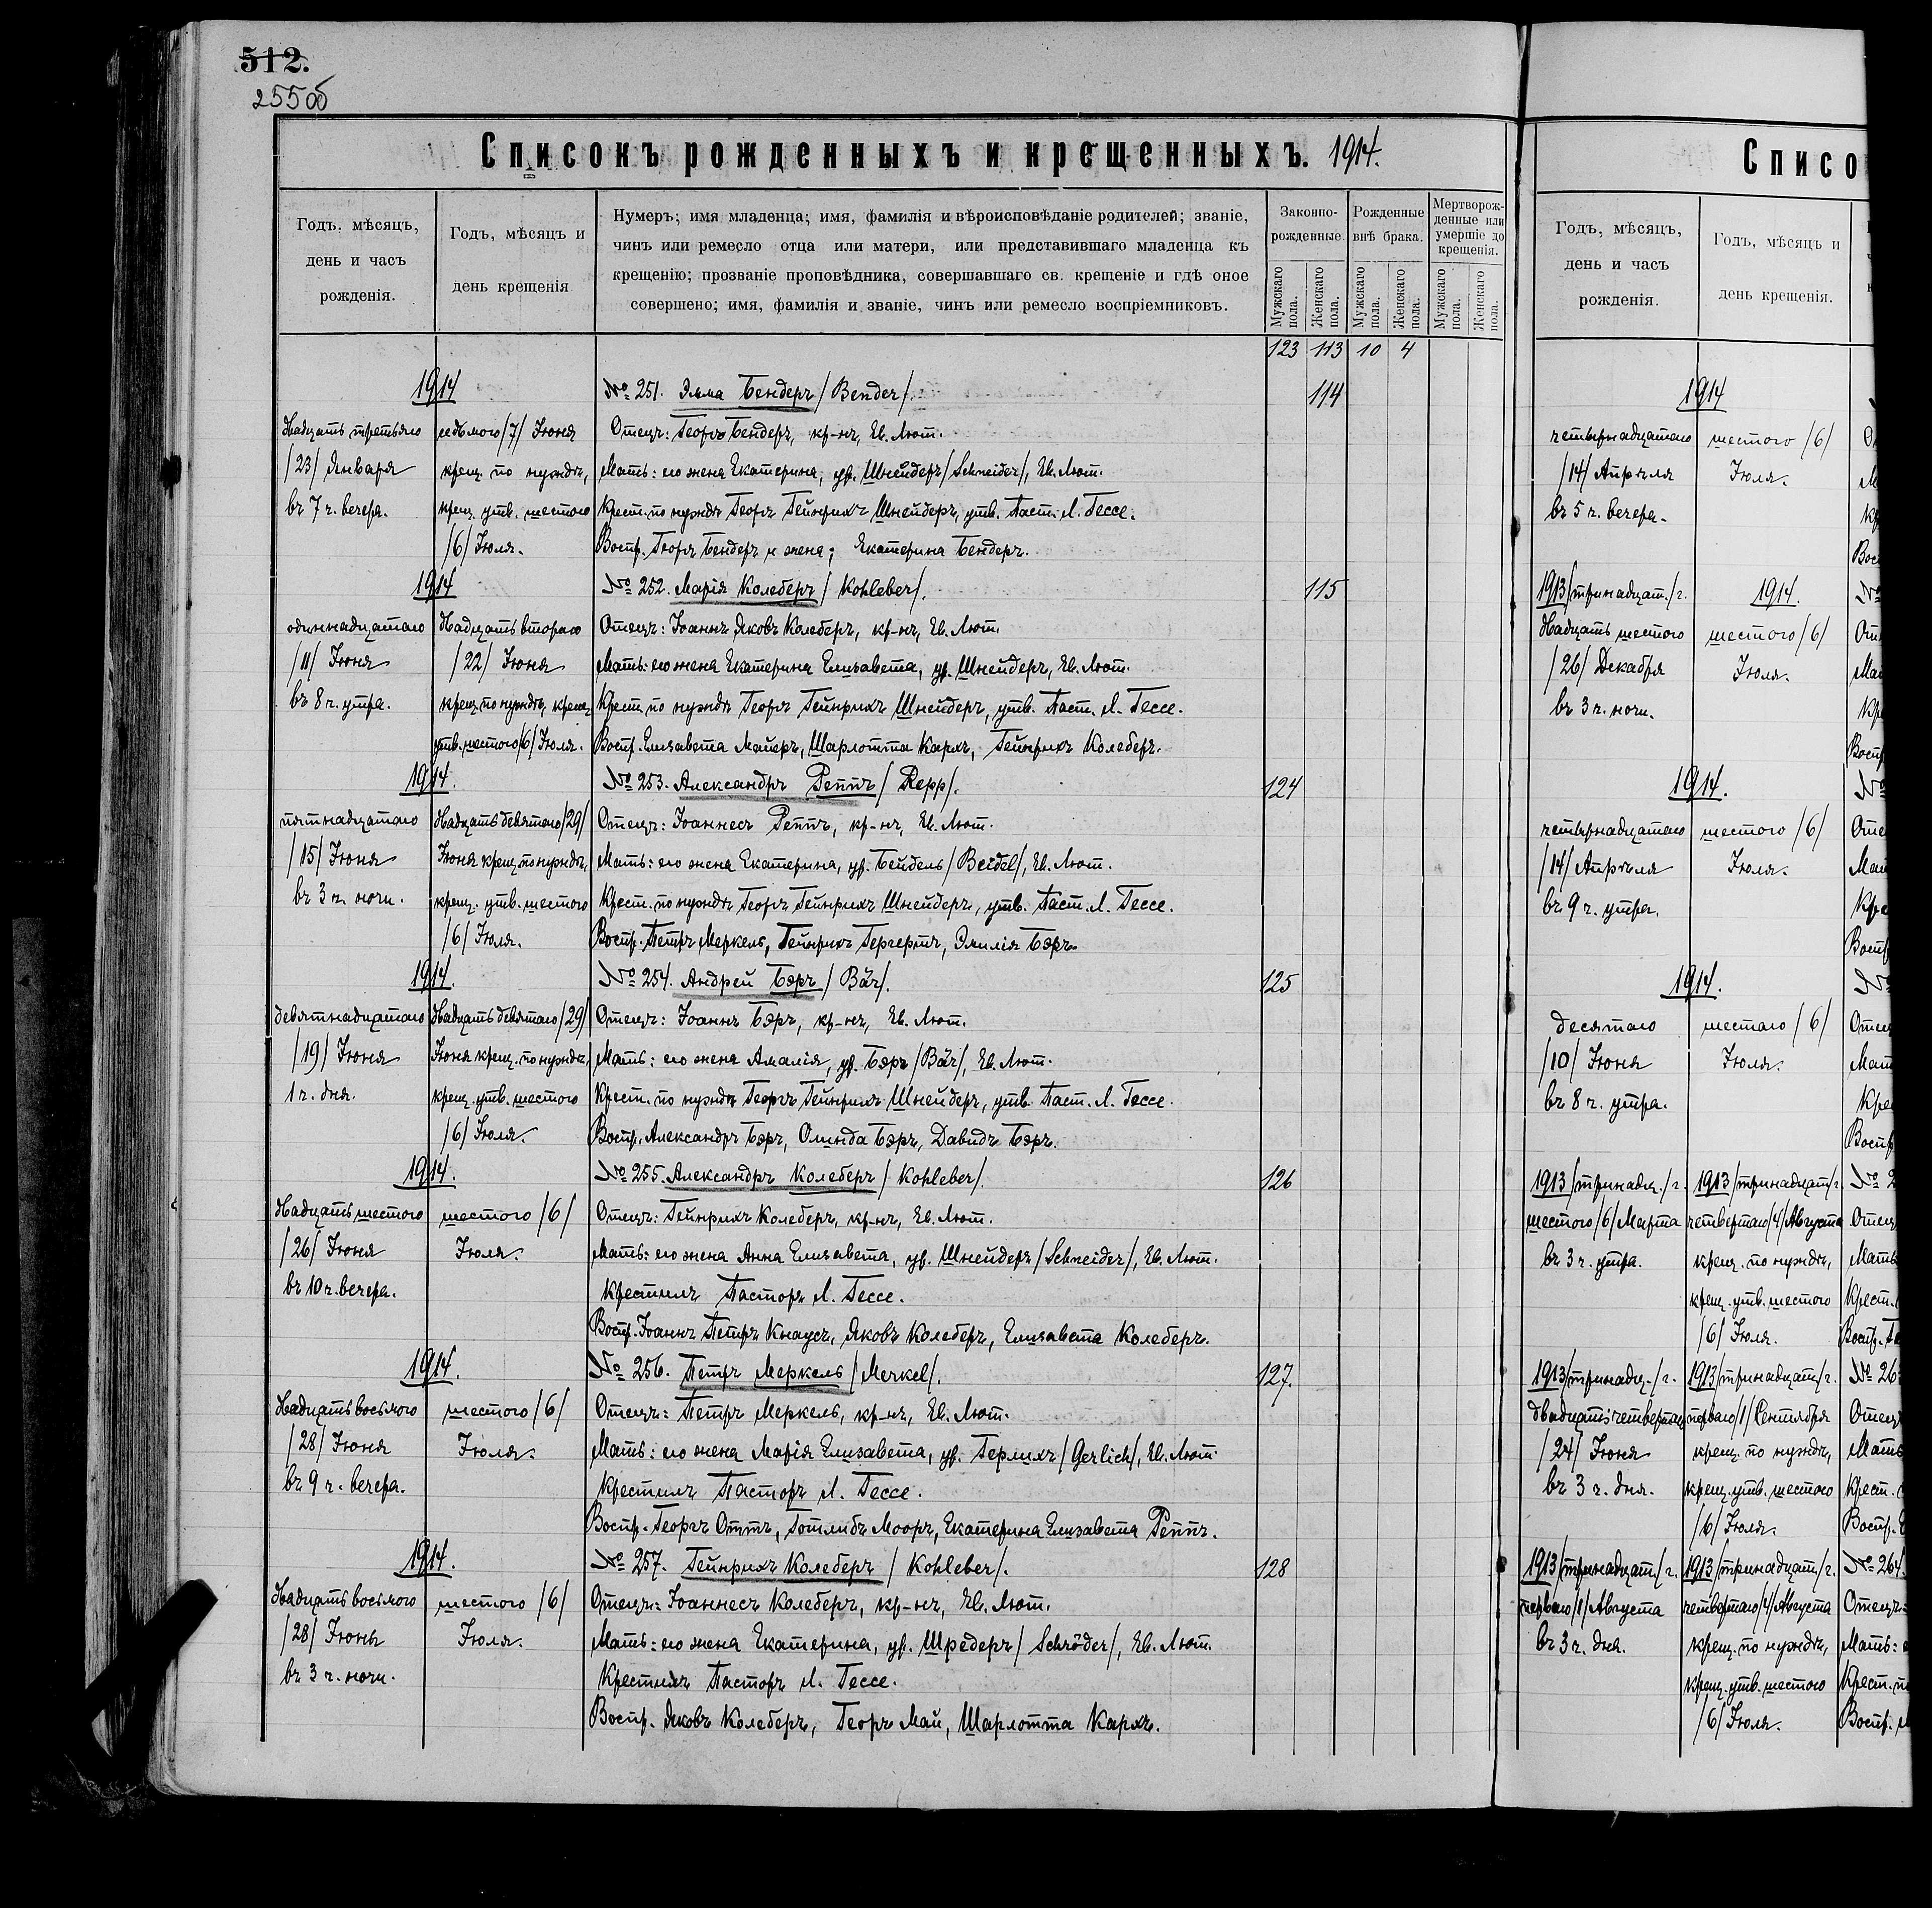 512.
255об
Списокъ рожденныхъ и крещенныхъ. 1914.
Годъ, мѣсяцъ, день и часъ рожденія.
Годъ, мѣсяцъ и день крещенія
Нумеръ; имя младенца; имя, фамилія и вѣроисповѣданіе родителей; званіе,
чинъ или ремесло отца или матери, или представившаго младенца къ
крещенію; прозваніе проповѣдника, совершавшаго св. крещеніе и гдѣ оное
совершено; имя, фамилія и званіе, чинъ или ремесло воспріемниковъ.
Законно-рожденные.
Рожденные внѣ брака.
Мертворож-денные или умершіе до крещенія.
Мужскаго пола.
Женскаго пола.
Мужскаго пола.
Женскаго пола.
Мужскаго пола.
Женскаго пола.
123 113 10 4
1914 № 251. Эмма Бендеръ /Bender/. 114
Двадцать третьяго седьмого /7/ Іюня Отецъ: Георгъ Бендеръ, кр-нъ, Ев. Лют.
/23/ Января крещ. по нуждѣ, Мать: его жена Екатерина, ур. Шнейдеръ /Schneider/, Ев. Лют.
въ 7 ч. вечера. крещ. утв. шестого Крест. по нуждѣ Георгъ Гейнрихъ Шнейдеръ, утв. Паст. Л. Гессе.
/6/ Іюля. Воспр. Георгъ Бендеръ и жена; Екатерина Бендеръ.
1914 № 252. Марія Колеберъ /Kohleber/. 115
одиннадцатаго Двадцать второго Отецъ: Іоаннъ Яковъ Колеберъ, кр-нъ, Ев. Лют.
/11/ Іюня /22/ Іюня Мать: его жена Екатерина Елизавета, ур. Шнейдеръ, Ев. Лют.
въ 8 ч. утра. крещ. по нуждѣ, крещ. Крест. по нуждѣ Георгъ Гейнрихъ Шнейдеръ, утв. Паст. Л. Гессе.
утв. шестого /6/ Іюля. Воспр. Елизавета Майеръ, Шарлотта Кархъ, Гейнрихъ Колеберъ.
1914. № 253. Александръ Реппъ /Repp/. 124
пятнадцатаго двадцать девятаго /29/ Отецъ: Іоаннесъ Реппъ, кр-нъ, Ев. Лют.
/15/ Іюня Іюня крещ. по нуждѣ, Мать: его жена Екатерина, ур. Бейдель /Beidel/, Ев. Лют.
въ 3 ч. ночи. крещ. утв. шестого Крест. по нуждѣ Георгъ Гейнрихъ Шнейдеръ, утв. Паст. Л. Гессе.
/6/ Іюля. Воспр. Петръ Меркель, Гейнрихъ Гергертъ, Эмилія Бэръ
1914. № 254. Андрей Бэръ /Bär/. 125
девятнадцатаго двадцать девятаго /29/ Отецъ: Іоаннъ Бэръ, кр-нъ, Ев. Лют.
/19/ Іюня Іюня крещ. по нуждѣ, Мать: его жена Амалія, ур. Бэръ /Bär/, Ев. Лют.
1 ч. дня. крещ. утв. шестого Крест. по нуждѣ Георгъ Гейнрихъ Шнейдеръ, утв. Паст. Л. Гессе.
/6/ Іюля. Воспр. Александръ Бэръ, Олинда Бэръ, Давидъ Бэръ.
1914. № 255. Александръ Колеберъ /Kohleber/. 126
Двадцать шестого шестого /6/ Отецъ: Гейнрихъ Колеберъ, кр-нъ, Ев. Лют.
/26/ Іюня Іюля. Мать: его жена Анна Елизавета, ур. Шнейдеръ /Schneider/, Ев. Лют.
въ 10 ч. вечера. Крестилъ Пасторъ Л. Гессе.
Воспр. Іоаннъ Петръ Кнаусъ, Яковъ Колеберъ, Елизавета Колеберъ.
1914. № 256. Петръ Меркель /Merkel/. 127.
Двадцать восьмого шестого /6/ Отецъ: Петръ Меркель, кр-нъ, Ев. Лют.
/28/ Іюня Іюля. Мать: его жена Марія Елизавета, ур. Герлихъ /Gerlich/, Ев. Лют.
въ 9 ч. вечера. Крестилъ Пасторъ Л. Гессе.
Воспр. Георгъ Оттъ, Готлибъ Мооръ, Екатерина Елизавета Реппъ.
1914. № 257. Гейнрихъ Колеберъ /Kohleber/. 128
двадцать восьмого шестого /6/ Отецъ: Іоаннесъ Колеберъ, кр-нъ, Ев. Лют.
/28/ Іюня Іюля. Мать: его жена Екатерина, ур. Шредеръ /Schröder/, Ев. Лют.
въ 3 ч. ночи. Крестилъ Пасторъ Л. Гессе.
Воспр. Яковъ Колеберъ, Георгъ Май, Шарлотта Кархъ.
Списо
Годъ, мѣсяцъ, день и часъ рожденія.
Годъ, мѣсяцъ и день крещенія.
1914
четырнадцатаго шестого /6/
/14/ Апрѣля Іюля.
въ 5 ч. вечера.
1913 /тринадцат./ г. 1914.
двадцать шестого шестого /6/
/26/ Декабря Іюля.
въ 3 ч. ночи.
1914.
четырнадцатаго шестого /6/
/14/ Апрѣля Іюля.
въ 9 ч. утра.
1914.
десятаго шестаго /6/
/10/ Іюня Іюля.
въ 8 ч. утра.
1913 /тринадц./ г. 1913 /тринадцат/ г.
шестого /6/ Марта четвертаго /4/ Августа
въ 3 ч. утра. крещ. по нуждѣ,
крещ. утв. шестого
/6/ Іюля.
1913 /тринадц./ г. 1913 /тринадцат/ г. № 26
двадцать четвертаго перваго /1/ Сентября
/24/ Іюня крещ. по нуждѣ,
въ 3 ч. дня. крещ. утв. шестого
/6/ Іюля.
1913 /тринадцат/ г. 1913 /тринадцат/ г. № 264.
перваго /1/ Августа четвертаго /4/ Августа Отецъ:
въ 3 ч. дня. крещ. по нуждѣ, Мать:
крещ. утв. шестого Крест.
/6/ Іюля. Воспр.